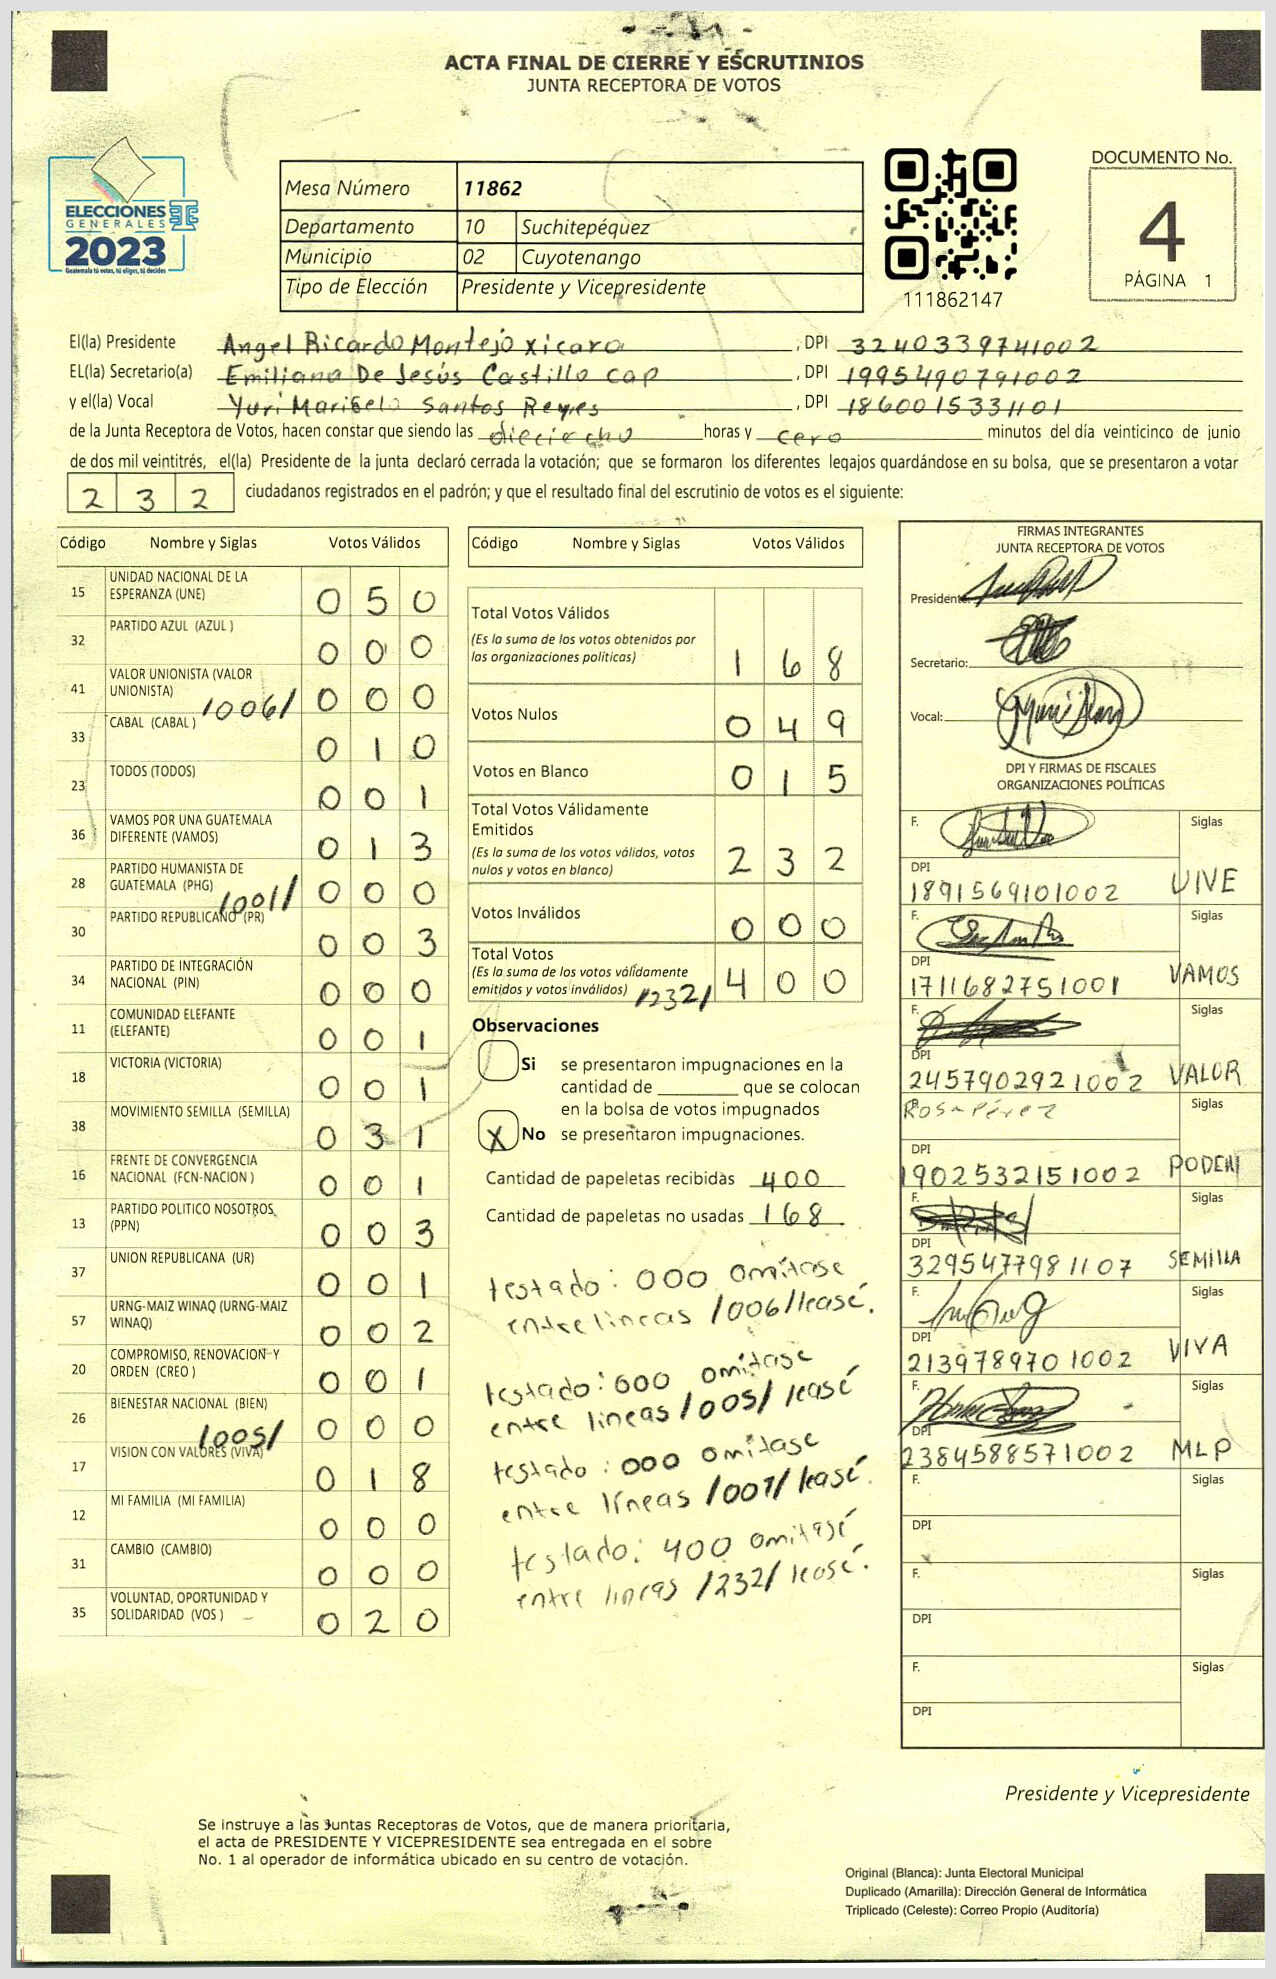 ACTA FINAL DE CIERRE Y ESCRUTINIOS
JUNTA RECEPTORA DE VOTOS
ELECCIONES
GENERALES
2023
Guatemala tú votas, tú eliges, tú decides
Mesa Número 11862
Departamento 10 Suchitepéquez
Municipio 02 Cuyotenango
Tipo de Elección Presidente y Vicepresidente
111862147
DOCUMENTO No.
4
PÁGINA 1
El(la) Presidente Angel Ricardo Montejo Xicara, DPI 3240339741002
EL(la) Secretario(a) Emiliana De Jesús Castillo Cap, DPI 1995490791002
y el(la) Vocal Yuri Maribela Santos Reyes, DPI 1860015331101
de la Junta Receptora de Votos, hacen constar que siendo las dieciocho horas y cero minutos del día veinticinco de junio
de dos mil veintitrés, el(la) Presidente de la junta declaró cerrada la votación; que se formaron los diferentes legajos guardándose en su bolsa, que se presentaron a votar
232 ciudadanos registrados en el padrón; y que el resultado final del escrutinio de votos es el siguiente:
Código Nombre y Siglas Votos Válidos
15 UNIDAD NACIONAL DE LA ESPERANZA (UNE) 050
32 PARTIDO AZUL (AZUL ) 000
41 VALOR UNIONISTA (VALOR UNIONISTA) /006/ 000
33 CABAL (CABAL ) 010
23 TODOS (TODOS) 001
36 VAMOS POR UNA GUATEMALA DIFERENTE (VAMOS) 013
28 PARTIDO HUMANISTA DE GUATEMALA (PHG) /001/ 000
30 PARTIDO REPUBLICANO (PR) 003
34 PARTIDO DE INTEGRACIÓN NACIONAL (PIN) 000
11 COMUNIDAD ELEFANTE (ELEFANTE) 001
18 VICTORIA (VICTORIA) 001
38 MOVIMIENTO SEMILLA (SEMILLA) 031
16 FRENTE DE CONVERGENCIA NACIONAL (FCN-NACION ) 001
13 PARTIDO POLITICO NOSOTROS (PPN) 003
37 UNION REPUBLICANA (UR) 001
57 URNG-MAIZ WINAQ (URNG-MAIZ WINAQ) 002
20 COMPROMISO, RENOVACION Y ORDEN (CREO ) 001
26 BIENESTAR NACIONAL (BIEN) /005/ 000
17 VISION CON VALORES (VIVA) 018
12 MI FAMILIA (MI FAMILIA) 000
31 CAMBIO (CAMBIO) 000
35 VOLUNTAD, OPORTUNIDAD Y SOLIDARIDAD (VOS ) 020
Código Nombre y Siglas Votos Válidos
Total Votos Válidos
(Es la suma de los votos obtenidos por
las organizaciones politicas) 168
Votos Nulos 049
Votos en Blanco 015
Total Votos Válidamente
Emitidos
(Es la suma de los votos válidos, votos
nulos y votos en blanco) 232
Votos Inválidos 000
Total Votos
(Es la suma de los votos válidamente
emitidos y votos inválidos) /232/ 400
Observaciones
Si se presentaron impugnaciones en la
cantidad de ________ que se colocan
en la bolsa de votos impugnados
X No se presentaron impugnaciones.
Cantidad de papeletas recibidas 400
Cantidad de papeletas no usadas 168
testado: 000 omitase
entre lineas /006/ leasé.
testado: 000 omitase
entre lineas /005/ leasé
testado: 000 omitase
entre líneas /001/ leasé.
testado: 400 omitasé
entre lineas /232/ leasé.
FIRMAS INTEGRANTES
JUNTA RECEPTORA DE VOTOS
Presidente:
Secretario:
Vocal:
DPI Y FIRMAS DE FISCALES
ORGANIZACIONES POLÍTICAS
F. Siglas
DPI
1891569101002 VIVE
F. Siglas
DPI
1711682751001 VAMOS
F. Siglas
DPI
2457902921002 VALOR
F. Rosa Pérez Siglas
DPI
1902532151002 PODEMI
F. Siglas
DPI
3295477981107 SEMILLA
F. Siglas
DPI
2139789701002 VIVA
F. Siglas
DPI
2384588571002 MLP
F. Siglas
DPI
F. Siglas
DPI
F. Siglas
DPI
Presidente y Vicepresidente
Se instruye a las Juntas Receptoras de Votos, que de manera prioritaria,
el acta de PRESIDENTE Y VICEPRESIDENTE sea entregada en el sobre
No. 1 al operador de informática ubicado en su centro de votación.
Original (Blanca): Junta Electoral Municipal
Duplicado (Amarilla): Dirección General de Informática
Triplicado (Celeste): Correo Propio (Auditoría)